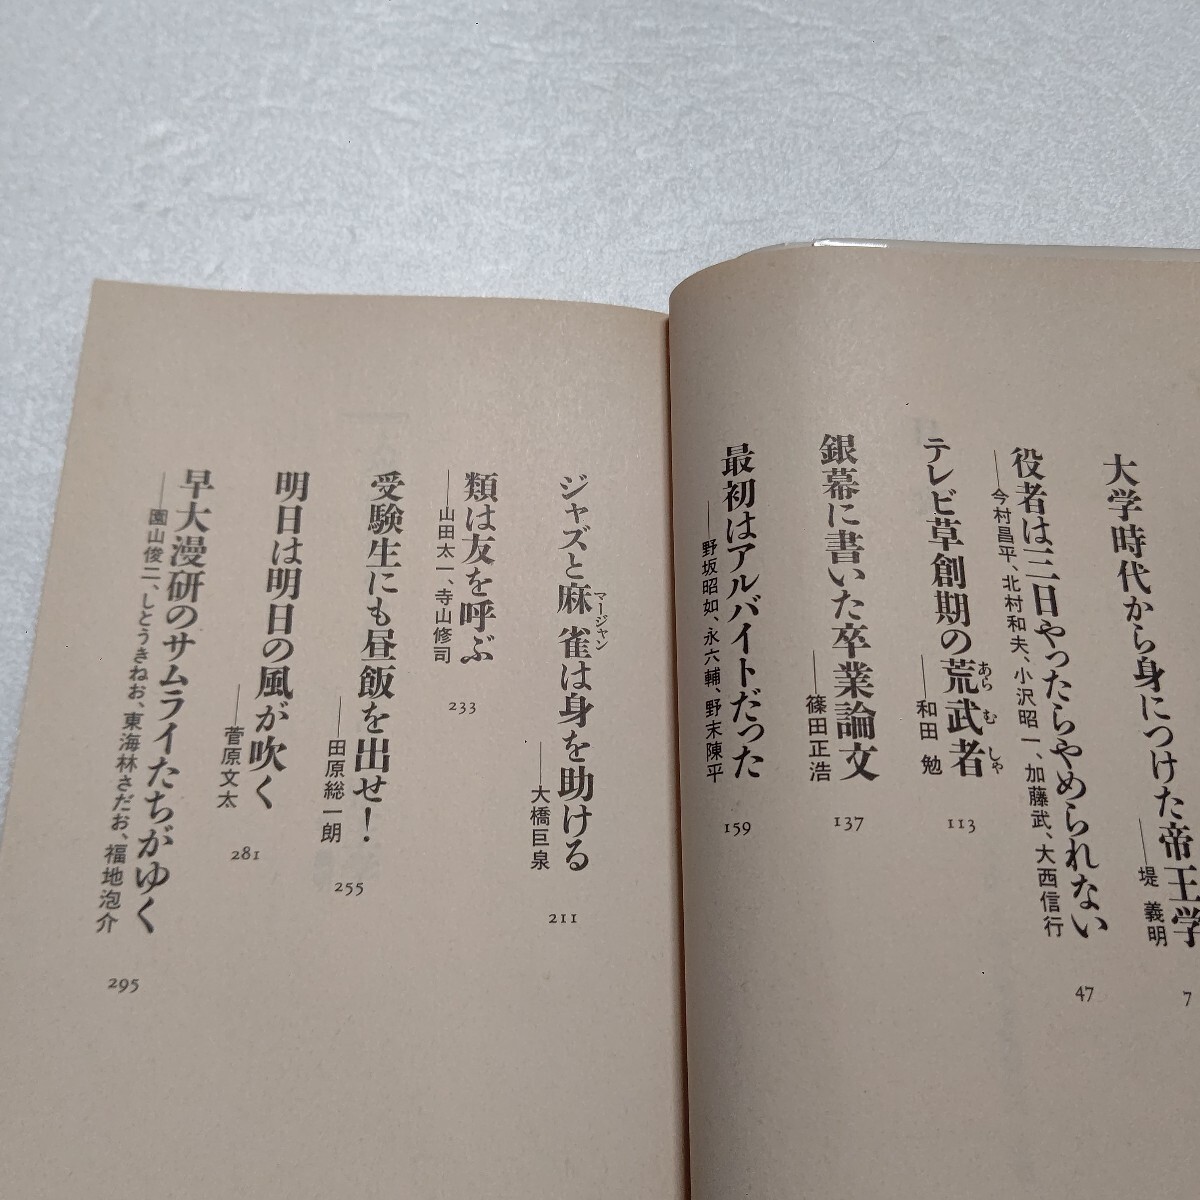 大学時代から身につけた帝王学
――堤　義明
7
役者は三日やったらやめられない
――今村昌平、北村和夫、小沢昭一、加藤武、大西信行
47
テレビ草創期の荒武者
あらむしゃ
――和田　勉
113
銀幕に書いた卒業論文
――篠田正浩
137
最初はアルバイトだった
――野坂昭如、永六輔、野末陳平
159
ジャズと麻雀は身を助ける
マージャン
――大橋巨泉
211
類は友を呼ぶ
――山田太一、寺山修司
233
受験生にも昼飯を出せ！
――田原総一朗
255
明日は明日の風が吹く
――菅原文太
281
早大漫研のサムライたちがゆく
――園山俊二、しとうきねお、東海林さだお、福地泡介
295